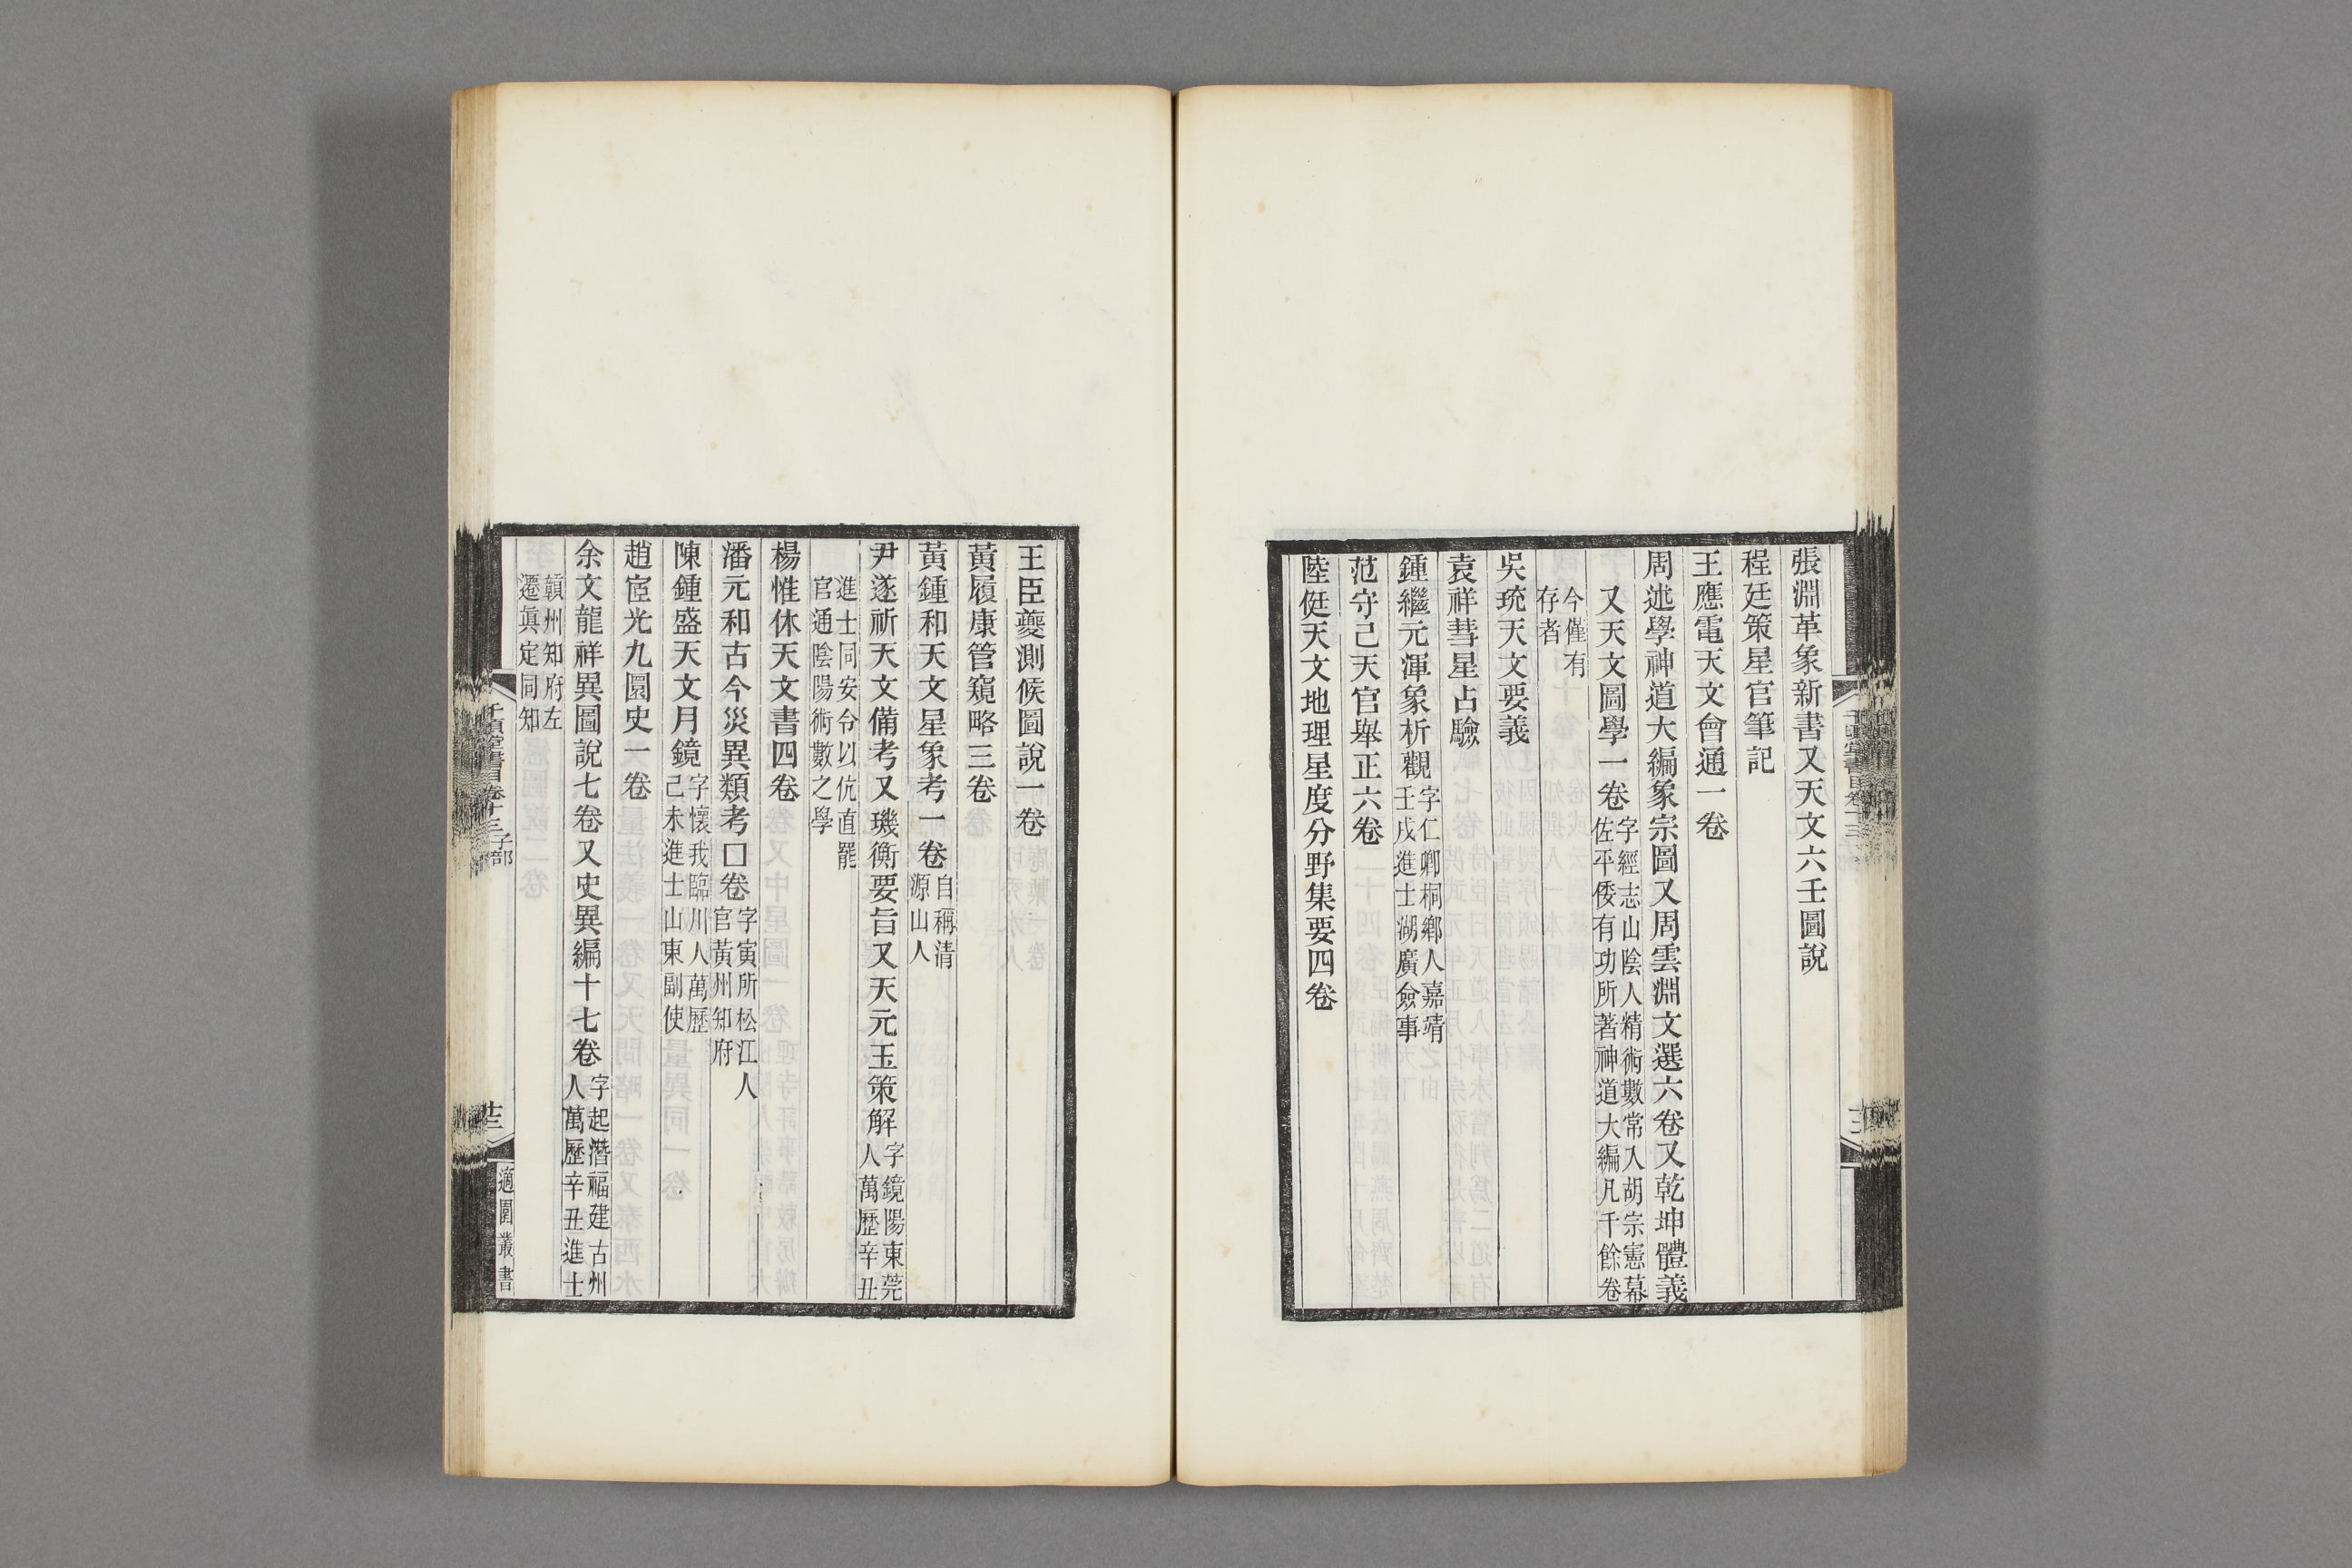 張淵革象新書又天文六壬圖說
程廷策星官筆記
王應電天文會通一卷
周述學神道大編象宗圖又周雲淵文選六卷又乾坤體義
又天文圖學一卷字經志山陰人精術數常入胡宗憲幕
佐平倭有功所著神道大編凡千餘卷
今僅有
存者
吳珫天文要義
袁祥彗星占驗
鍾繼元渾象析觀字仁卿桐鄉人嘉靖
壬戌進士湖廣僉事
范守己天官舉正六卷
陸侹天文地理星度分野集要四卷
王臣夔測候圖說一卷
黃履康管窺略三卷
黃鍾和天文星象考一卷自稱清
源山人
尹遂祈天文備考又璣衡要旨又天元玉策解字鏡陽東莞
人萬歷辛丑
進士同安令以伉直罷
官通陰陽術數之學
楊惟休天文書四卷
潘元和古今災異類考囗卷字寅所松江人
官黃州知府
陳鍾盛天文月鏡字懷我臨川人萬歷
己未進士山東副使
趙宧光九圜史一卷
余文龍祥異圖說七卷又史異編十七卷字起潛福建古州
人萬歷辛丑進士
贛州知府左
遷眞定同知
千頃堂書目卷十三子部
十三
適園叢書